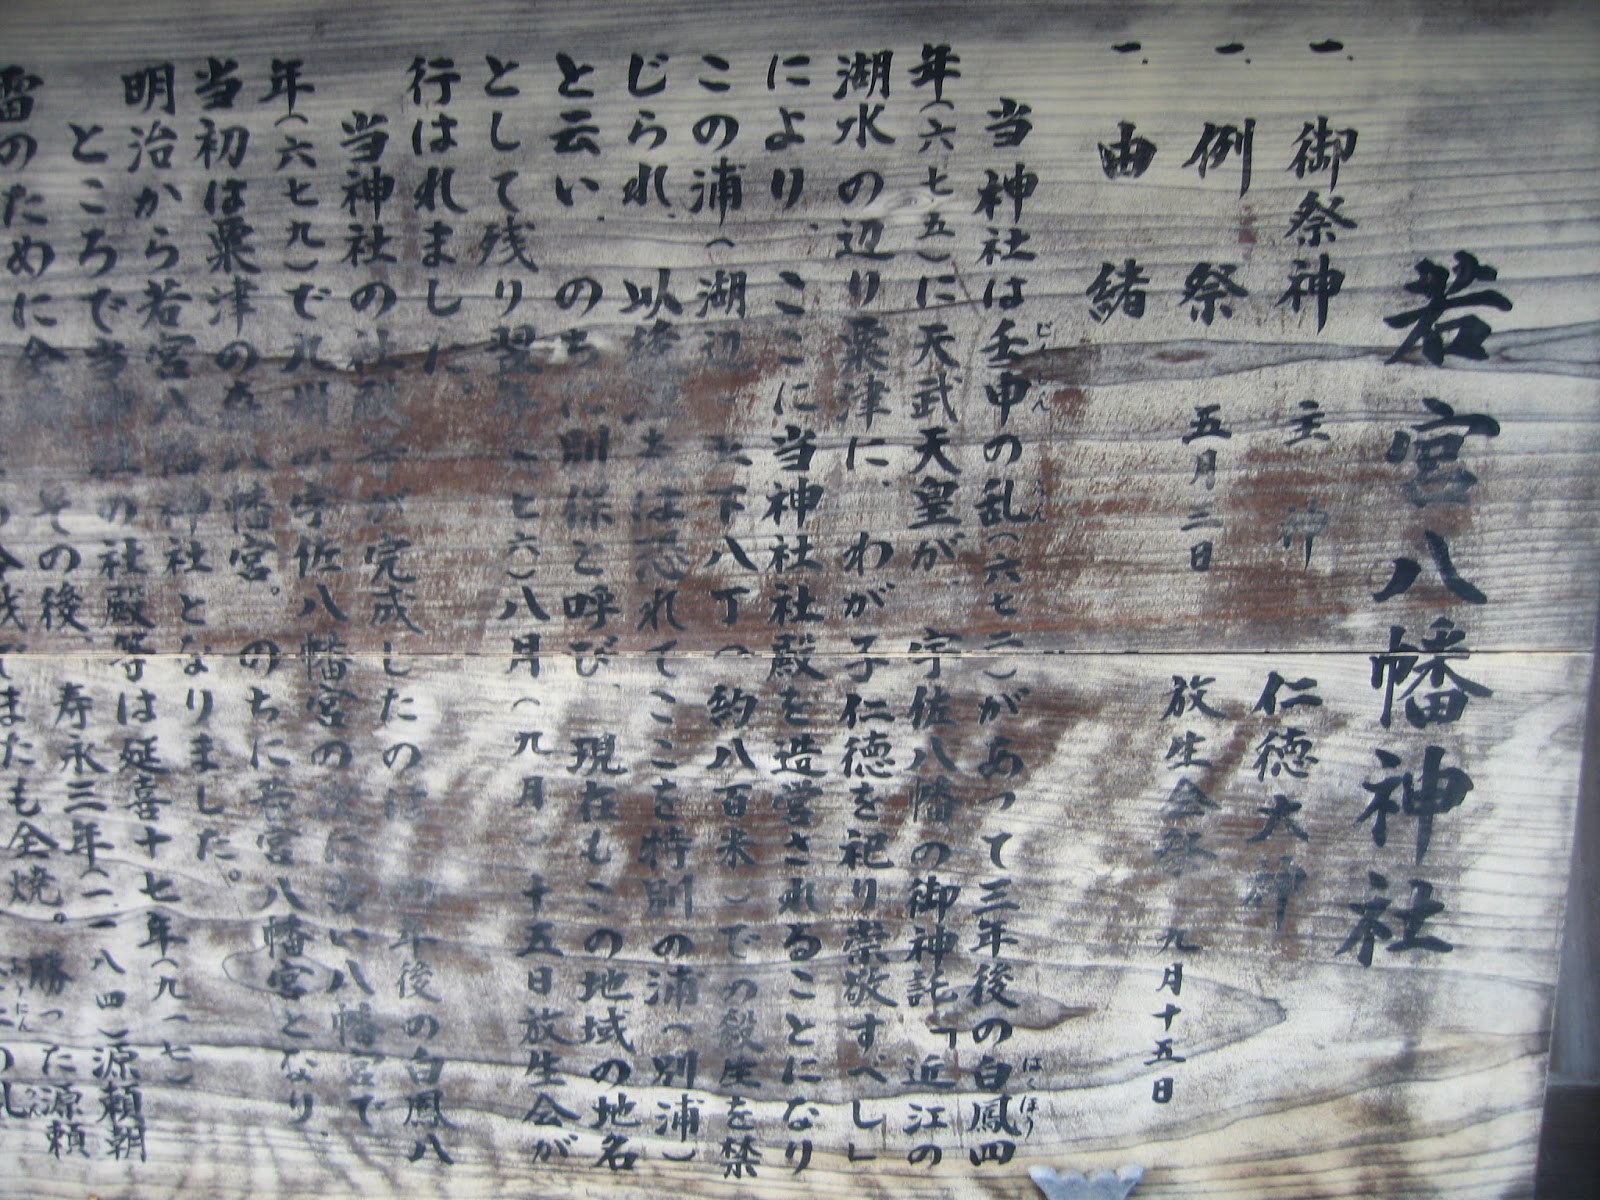 若宮八幡神社
一、御祭神 主神 仁徳大神
一、例祭 五月二日 放生会祭 九月十五日
一、由緒
当神社は壬申の乱(六七二)があって三年後の白鳳四
年(六七五)に天武天皇が、宇佐八幡の御神託「近江の
湖水の辺り粟津に、わが子仁徳を祀り崇敬すべし」
により、ここに当神社社殿を造営されることになり
この浦(湖辺 下八丁(約八百米)での殺生を禁
じられ、以後 は恐れてここを特別の浦(別浦)
と云い、のちに別保と呼び、現在もこの地域の地名
として残り翌年 七六)八月(九月)十五日放生会が
行はれました。
当神社の社殿 が完成したのは 四年後の白鳳八
年(六七九)で九州の宇佐八幡宮の次に古い八幡宮で
当初は粟津の 八幡宮。のちに若宮八幡宮となり、
明治から若宮八幡神社となりました。
ところで当神社の社殿等は延喜十七年(九一七)
その後、寿永三年(一一八四)源頼朝
雷のために全 全焼。勝った源頼